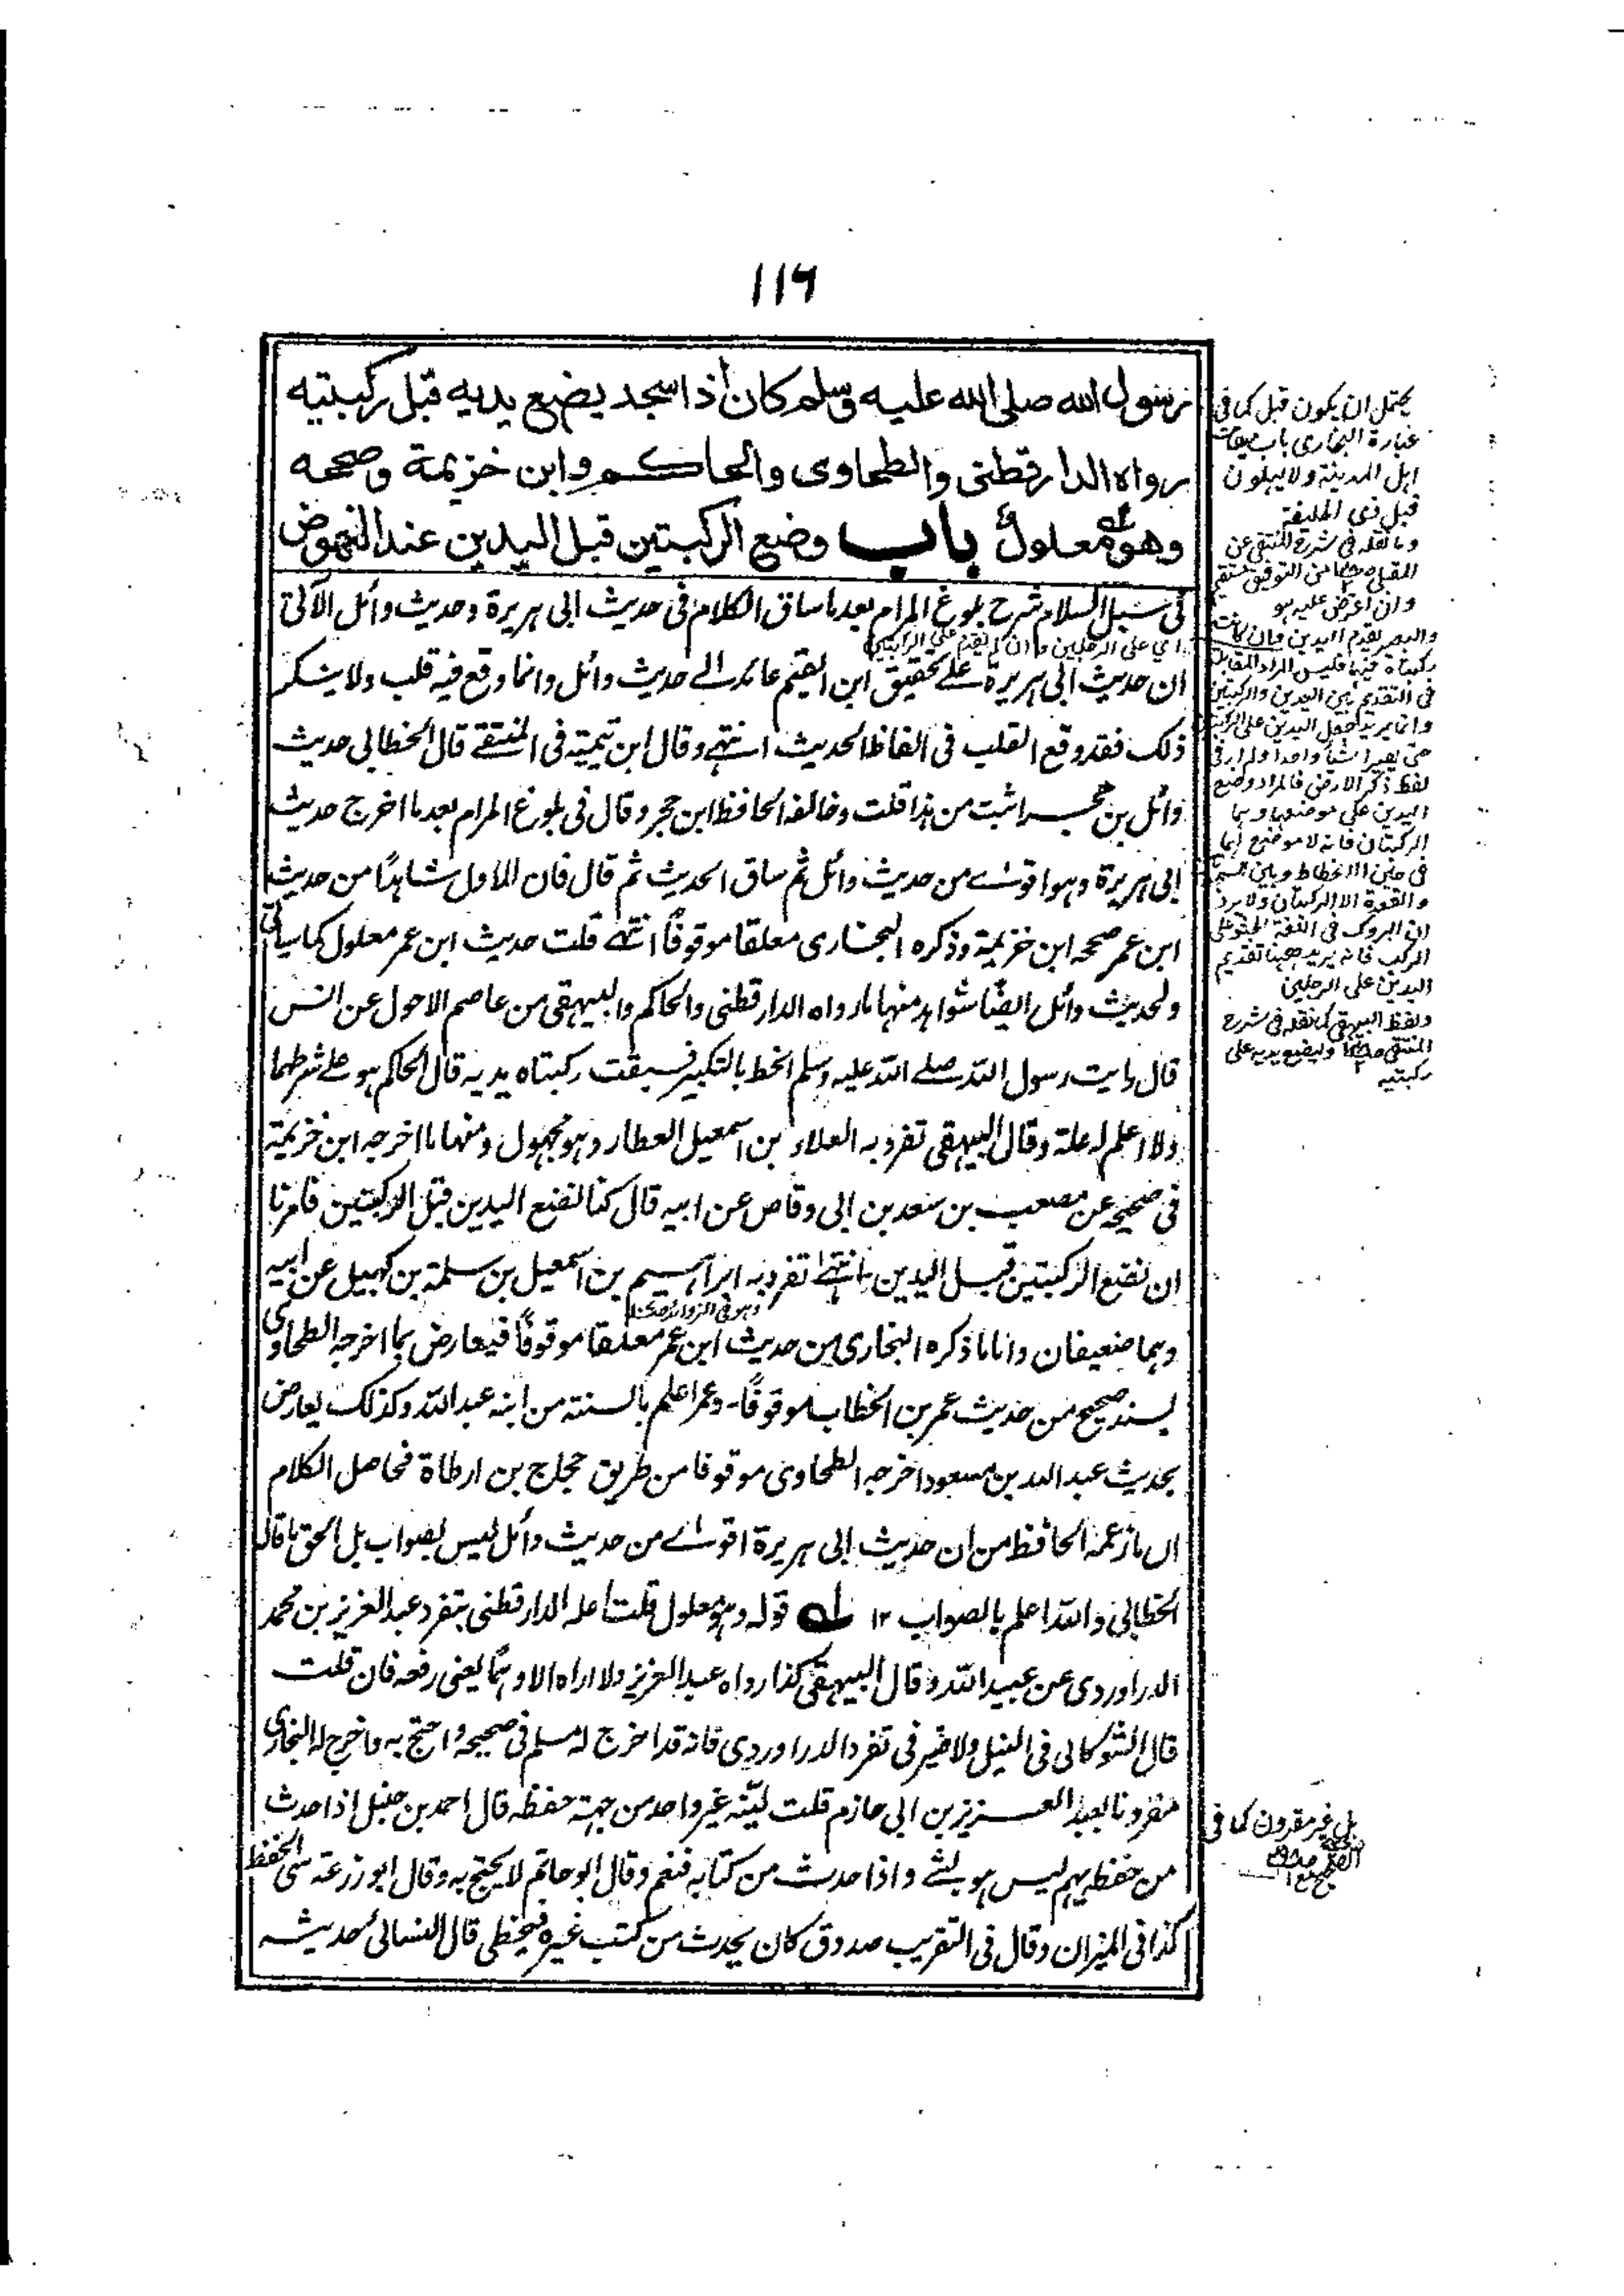 ۱۱۶
رسول الله صلى الله عليه وسلم كان اذا سجد يضع يديه قبل ركبتيه
رواه الدارقطنى والطحاوى والحاكم وابن خزيمة وصححه
وهو معلول باب وضع الركبتين قبل اليدين عند النهوض
فى سبل السلام شرح بلوغ المرام بعد ما ساق الكلام فى حديث ابى هريرة وحديث وائل الآتى
ان حديث ابى هريرة على تحقيق ابن القيم عائد الى حديث وائل وانما وقع فيه قلب ولا ينكر
ذلك فقد وقع القلب فى الفاظ الحديث انتهى وقال ابن تيمية فى المنتقى قال الخطابى حديث
وائل بن حجر اثبت من هذا قلت وخالفه الحافظ ابن حجر وقال فى بلوغ المرام بعد ما اخرج حديث
ابى هريرة وهو اقوى من حديث وائل ثم ساق الحديث ثم قال فان للاول شاهدًا من حديث
ابن عمر صححه ابن خزيمة وذكره البخارى معلقا موقوفًا انتهى قلت حديث ابن عمر معلول كما سياتى
ولحديث وائل ايضًا شواهد منها ما رواه الدارقطنى والحاكم والبيهقى من عاصم الاحول عن انس
قال رايت رسول الله صلى الله عليه وسلم انحط بالتكبير فسبقت ركبتاه يديه قال الحاكم هو على شرطهما
ولا اعلم له علة وقال البيهقى تفرد به العلاء بن اسمعيل العطار وهو مجهول ومنها ما اخرجه ابن خزيمة
فى صحيحه عن مصعب بن سعد بن ابى وقاص عن ابيه قال كنا نضع اليدين قبل الركبتين فامرنا
ان نضع الركبتين قبل اليدين انتهى تفرد به ابراهيم بن اسمعيل بن سلمة بن كهيل عن ابيه
وهما ضعيفان واما ما ذكره البخارى من حديث ابن عمر معلقا موقوفًا فيعارض بما اخرجه الطحاوى
بسند صحيح من حديث عمر بن الخطاب موقوفًا - وعمر اعلم بالسنة من ابنه عبد الله وكذلك يعارض
بحديث عبد الله بن مسعود اخرجه الطحاوى موقوفا من طريق حجاج بن ارطاة فحاصل الكلام
ان ما زعمه الحافظ من ان حديث ابى هريرة اقوى من حديث وائل ليس بصواب بل الحق ما قاله
الخطابى والله اعلم بالصواب ۱۲ له قوله وهو معلول قلت اعله الدارقطنى بتفرد عبد العزيز بن محمد
الدراوردى عن عبيد الله وقال البيهقى كذا رواه عبد العزيز ولا اراه الا وهمًا يعنى رفعه فان قلت
قال الشوكانى فى النيل ولا ضير فى تفرد الدراوردى فانه قد اخرج له مسلم فى صحيحه واحتج به واخرج له البخارى
مقرونا بعبد العزيز بن ابى حازم قلت ليّنه غير واحد من جهة حفظه قال احمد بن حنبل اذا حدث
من حفظه يهم ليس هو بشئ واذا حدث من كتابه فنعم وقال ابو حاتم لا يحتج به وقال ابو زرعة سئ الحفظ
كذا فى الميزان وقال فى التقريب صدوق كان يحدث من كتب غيره فيخطى قال النسائى حديثه
يحتمل ان يكون قبل كما فى
عبارة البخارى باب ميقات
اهل المدينة ولا يهلون
قبل ذى الحليفة
وما نقله فى شرح المنتقى عن
وان اعترض عليه هو
والبعير يقدم اليدين وان كانت
فى التقديم بين اليدين والركبتين
لفظ ذكر الارض فالمراد وضع
اليدين على موضعهما وهما
الركبتان فانه لا موضع لهما
اليدين على الرجلين
ولفظ البيهقى كما نقله فى شرح
المنتقى وليضع يديه على
ركبتيه
بل غير مقرون كما فى